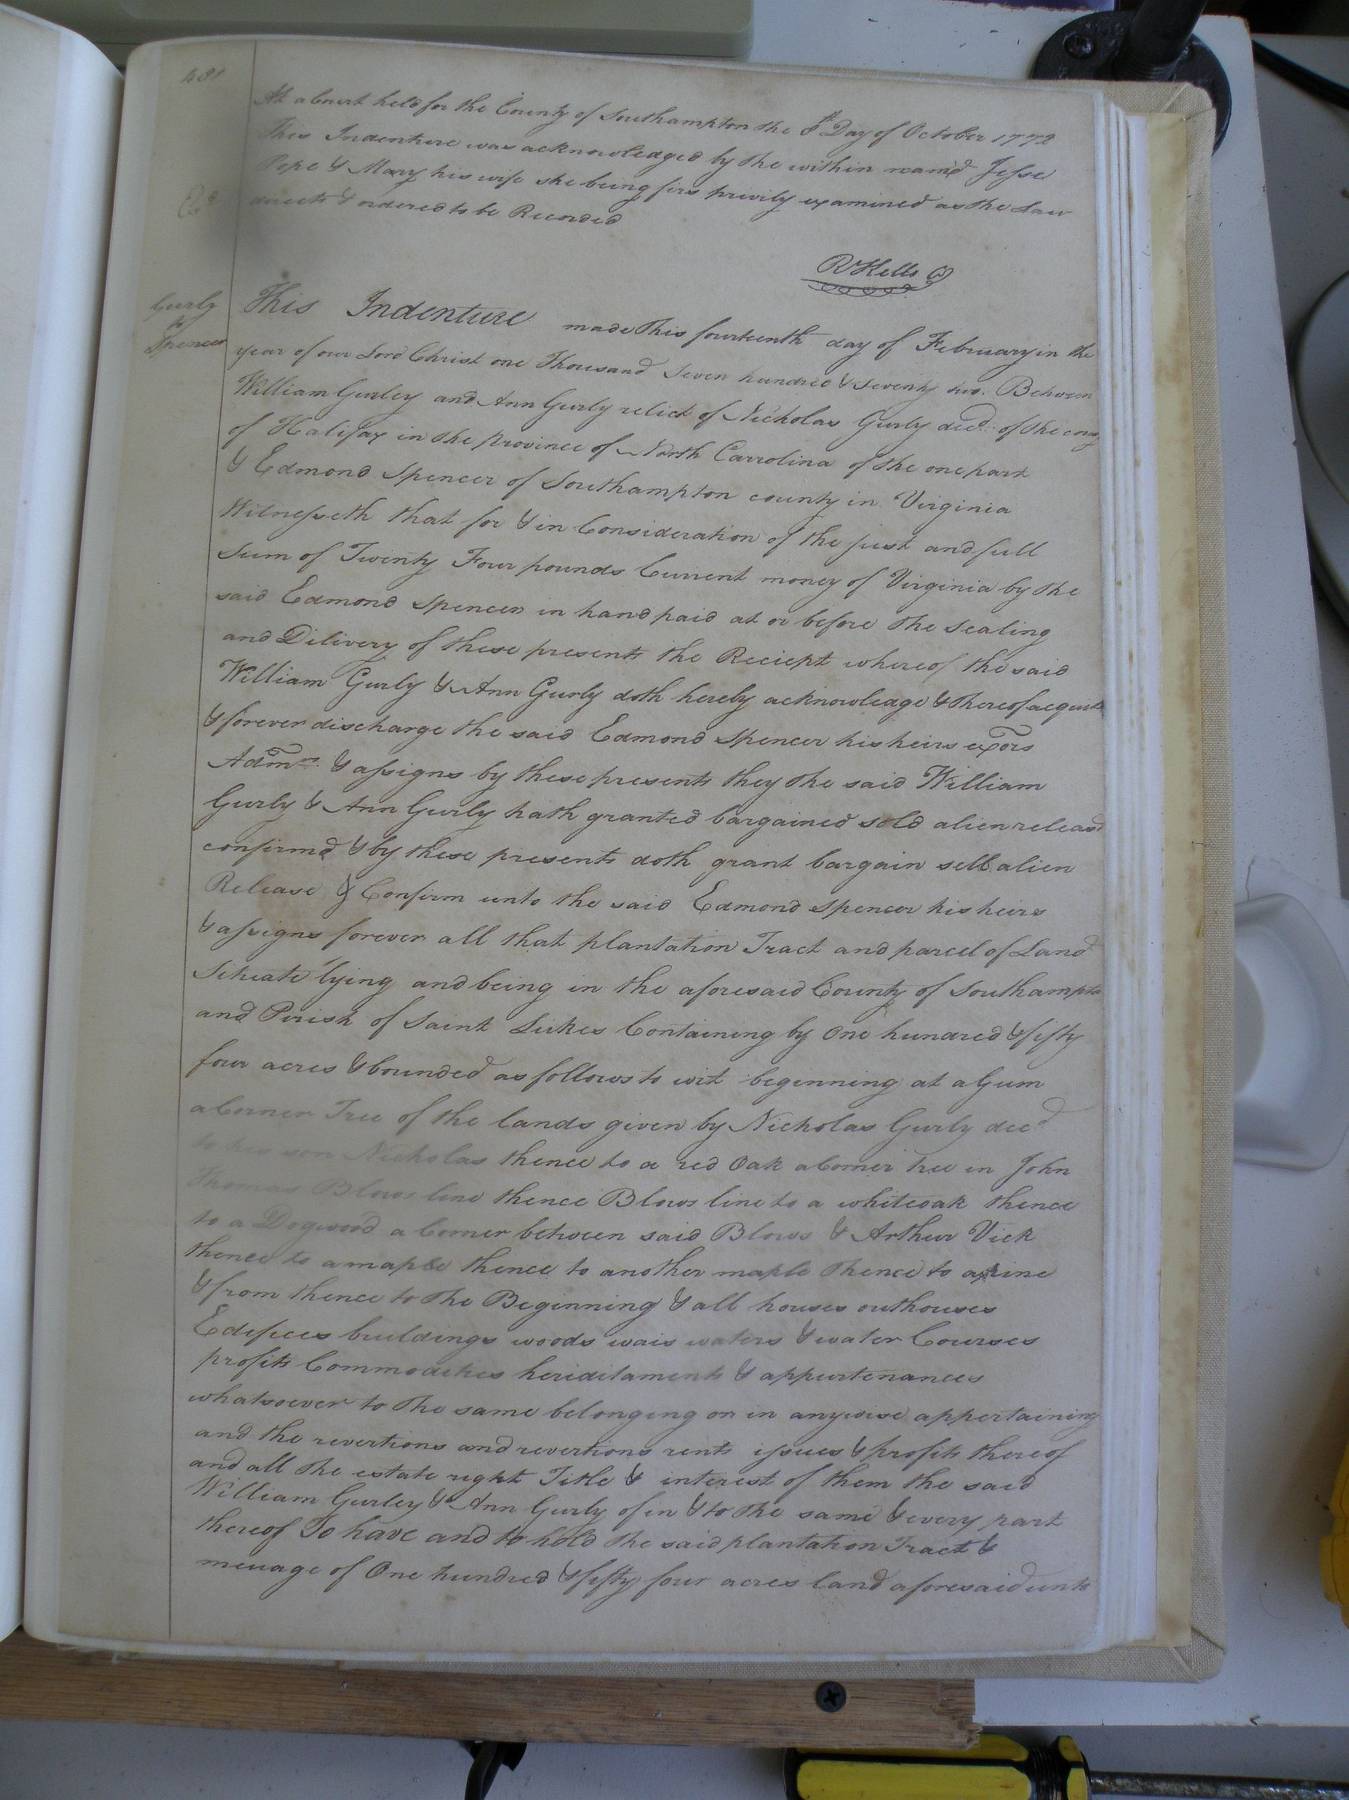 431
At a Court held for the County of Southampton the 8th Day of October 1772
This Indenture was acknowledged by the within namd. Jesse
Pope & Mary his wife she being firs privily examined as the Law
directs & ordered to be Recorded
Ed
R Kello C
Gurly
to
Spencer
This Indenture made this fourteenth day of February in the
year of our Lord Christ one Thousand Seven hundred & seventy two. Between
William Gurley and Ann Gurly relict of Nicholas Gurly decd. of the couy
of Halifax in the province of North Carrolina of the one part
& Edmond Spencer of Southampton county in Virginia
Witnesseth that for & in Consideration of the just and full
Sum of Twenty Four pounds Current money of Virginia by the
said Edmond Spencer in hand paid at or before the Sealing
and Dilivery of these presents the Reciept whereof the said
William Gurly & Ann Gurly doth hereby acknowledge & thereof acquit
& forever discharge the said Edmond Spencer his heirs exors
Admrs. & assigns by these presents they the said William
Gurly & Ann Gurly hath granted bargained sold alien releasd
confirmd & by these presents doth grant bargain sell alien
Release & Confirm unto the said Edmond Spencer his heirs
& assigns forever all that plantation Tract and parcel of Land
Situate lying and being in the aforesaid County of Southampto
and Perish of Saint Lukes Containing by One hundred & fifty
four acres & bounded as follows to wit beginning at a Gum
a Corner Tree of the lands given by Nicholas Gurly decd
to his son Nicholas thence to a red Oak a Corner tree in John
Thomas Blows line thence Blows line to a whiteoak thence
to a Dogwood a Corner between said Blows & Arthur Vick
thence to a maple thence to another maple thence to a pine
& from thence to the Beginning & all houses outhouses
Edifices buildings woods wais waters & water Courses
profits Commodities heriditaments & appurtenances
whatsoever to the same belonging or in anywise appertaining
and the revertions and revertions rents issues & profits thereof
and all the estate right Title & interest of them the said
William Gurley & Ann Gurly of in & to the same & every part
thereof To have and to hold the said plantation Tract &
meuage of One hundred & fifty four acres land aforesaid unto